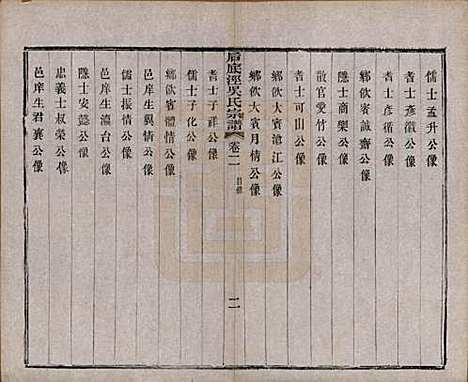 儒士孟升公像
耆士彥徵公像
耆士彥循公像
鄉飲賓誠齋公像
隱士商槼公像
散官愛竹公像
耆士可山公像
鄉飲大賓滄江公像
鄉飲大賓月情公像
后底涇吳氏宗譜 卷二 目錄 二
耆士子祥公像
儒士子化公像
鄉飲賓體情公像
儒士振情公像
邑庠生瀛台公像
隱士安懿公像
忠義士叔榮公像
邑庠生君襄公像